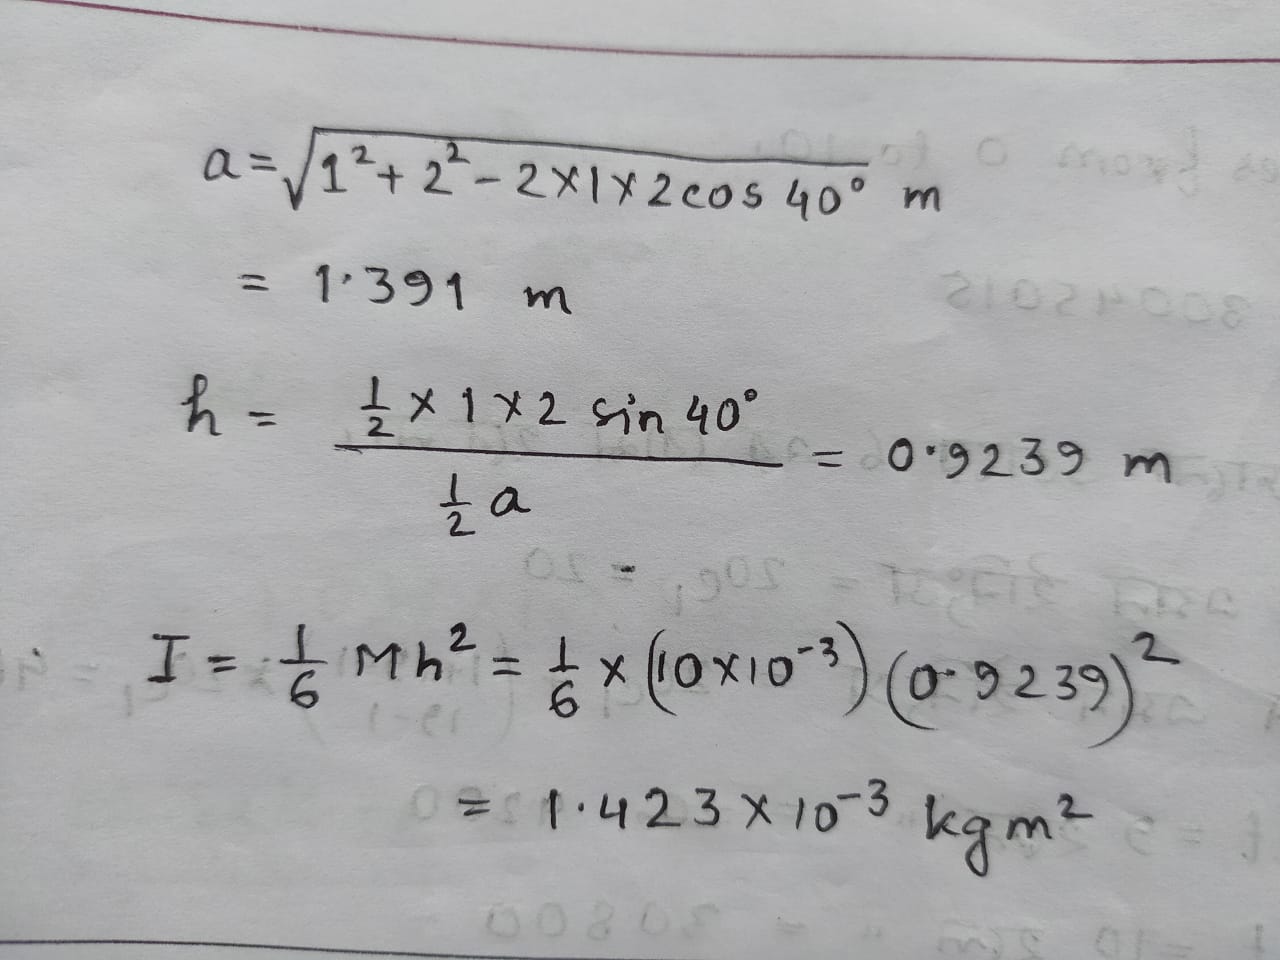 a = √(1² + 2² - 2×1×2 cos 40°) m
= 1.391 m
h = (½ × 1 × 2 sin 40°) / (½ a) = 0.9239 m
I = 1/6 Mh² = 1/6 × (10×10⁻³) (0.9239)²
= 1.423 × 10⁻³ kg m²